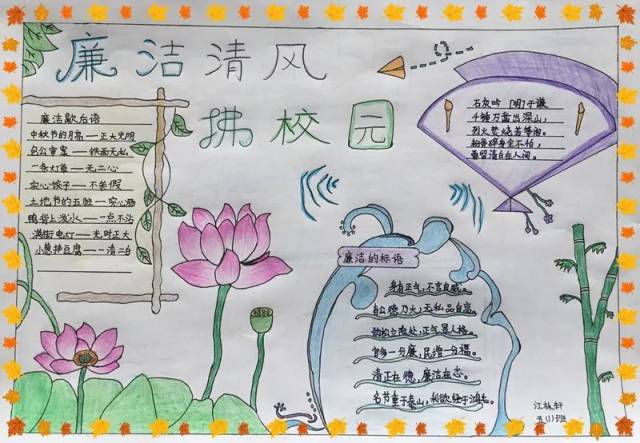 廉洁清风
拂校园
廉洁歇后语
中秋节的月亮——正大光明
包公审案——铁面无私
一条灯草——无二心
实心饺子——不参假
土地爷的五脏——实心
鸭背上泼水——一点不沾
满街电灯——光明正大
小葱拌豆腐——一清二白
石灰吟 [明]于谦
千锤万凿出深山,
烈火焚烧若等闲。
粉骨碎身全不怕,
要留清白在人间。
廉洁的标语
身有正气,不言自威。
有公德乃大,无私品自高。
正气
官多一分廉,民增一分福。
清正在德,廉洁在志。
名节重于泰山,利欲轻于鸿毛。
江
五(1)班